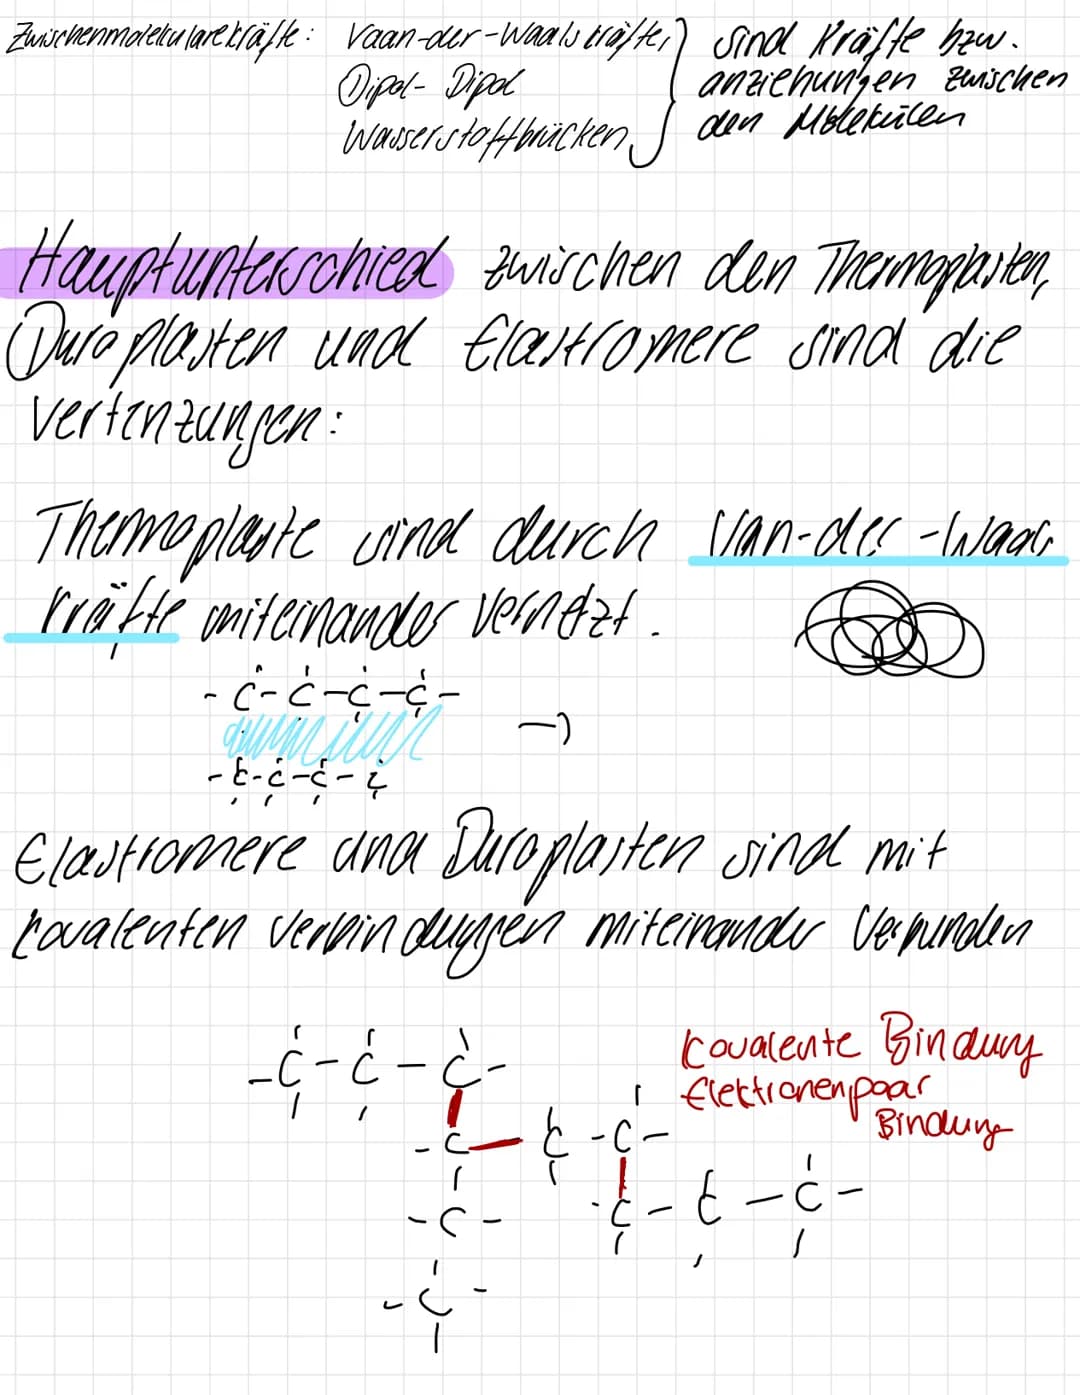 Zwischenmolekulare kräfte: Vaan-der-Waals kräfte,
Dipol- Dipol
Wasserstoffbrücken
sind Kräfte bzw.
anziehungen zwischen
den Molekülen
Hauptunterschied zwischen den Thermoplasten,
Duroplasten und Elastromere sind die
Thermoplaste sind durch Van-der-Waals
Kräfte miteinander vernetzt.
- C - C - C - C -
- C - C - C - C
Elastromere und Duroplasten sind mit
kovalenten Verbindungen miteinander verbunden
kovalente Bindung
Elektronenpaar
Bindung
- C - C - C -
- C - C - C -
- C - C - C - C -
- C -